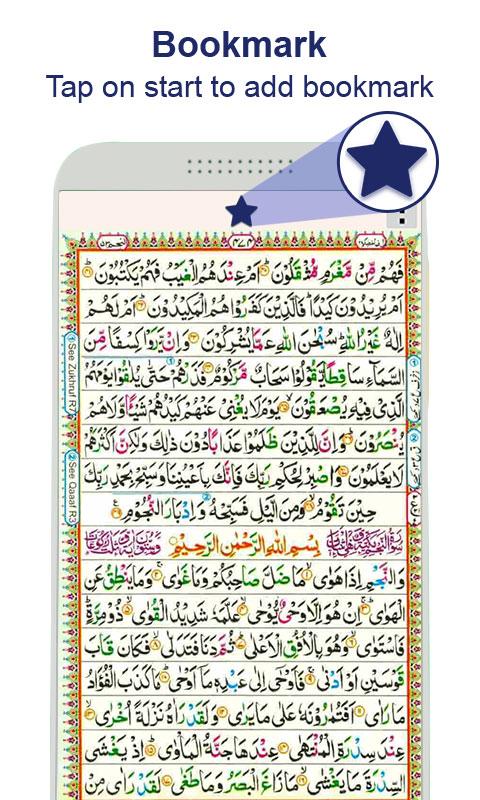 Bookmark
Tap on start to add bookmark
فَهُمْ مِّنْ مَّغْرَمٍ مُّثْقَلُوْنَ ۝ اَمْ عِنْدَهُمُ الْغَيْبُ فَهُمْ يَكْتُبُوْنَ ۝
اَمْ يُرِيْدُوْنَ كَيْدًا ؕ فَالَّذِيْنَ كَفَرُوْا هُمُ الْمَكِيْدُوْنَ ۝ اَمْ لَهُمْ
اِلٰهٌ غَيْرُ اللّٰهِ ؕ سُبْحٰنَ اللّٰهِ عَمَّا يُشْرِكُوْنَ ۝ وَاِنْ يَّرَوْا كِسْفًا مِّنَ
السَّمَآءِ سَاقِطًا يَّقُوْلُوْا سَحَابٌ مَّرْكُوْمٌ ۝ فَذَرْهُمْ حَتّٰى يُلٰقُوْا يَوْمَهُمُ
الَّذِيْ فِيْهِ يُصْعَقُوْنَ ۝ يَوْمَ لَا يُغْنِيْ عَنْهُمْ كَيْدُهُمْ شَيْـًٔا وَّلَا هُمْ
يُنْصَرُوْنَ ۝ وَاِنَّ لِلَّذِيْنَ ظَلَمُوْا عَذَابًا دُوْنَ ذٰلِكَ وَلٰكِنَّ اَكْثَرَهُمْ
لَا يَعْلَمُوْنَ ۝ وَاصْبِرْ لِحُكْمِ رَبِّكَ فَاِنَّكَ بِاَعْيُنِنَا وَسَبِّحْ بِحَمْدِ رَبِّكَ
حِيْنَ تَقُوْمُ ۝ وَمِنَ الَّيْلِ فَسَبِّحْهُ وَاِدْبَارَ النُّجُوْمِ ۝
بِسْمِ اللّٰهِ الرَّحْمٰنِ الرَّحِيْمِ
وَالنَّجْمِ اِذَا هَوٰى ۝ مَا ضَلَّ صَاحِبُكُمْ وَمَا غَوٰى ۝ وَمَا يَنْطِقُ عَنِ
الْهَوٰى ۝ اِنْ هُوَ اِلَّا وَحْيٌ يُّوْحٰى ۝ عَلَّمَهٗ شَدِيْدُ الْقُوٰى ۝ ذُوْ مِرَّةٍ ؕ
فَاسْتَوٰى ۝ وَهُوَ بِالْاُفُقِ الْاَعْلٰى ۝ ثُمَّ دَنَا فَتَدَلّٰى ۝ فَكَانَ قَابَ
قَوْسَيْنِ اَوْ اَدْنٰى ۝ فَاَوْحٰۤى اِلٰى عَبْدِهٖ مَاۤ اَوْحٰى ۝ مَا كَذَبَ الْفُؤَادُ
مَا رَاٰى ۝ اَفَتُمٰرُوْنَهٗ عَلٰى مَا يَرٰى ۝ وَلَقَدْ رَاٰهُ نَزْلَةً اُخْرٰى ۝
عِنْدَ سِدْرَةِ الْمُنْتَهٰى ۝ عِنْدَهَا جَنَّةُ الْمَاْوٰى ۝ اِذْ يَغْشَى
السِّدْرَةَ مَا يَغْشٰى ۝ مَا زَاغَ الْبَصَرُ وَمَا طَغٰى ۝ لَقَدْ رَاٰى مِنْ
See Zukhruf R7
See Qaaaf R3